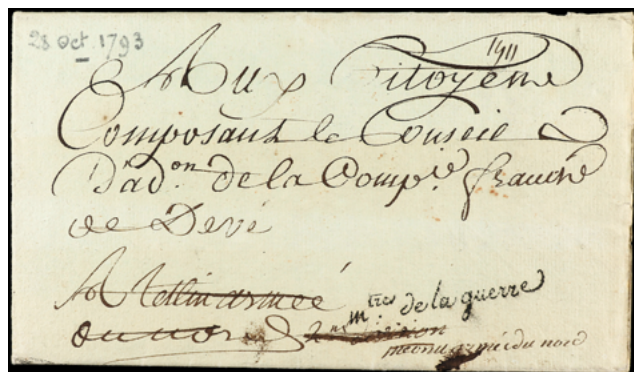 28 Oct. 1793
1911
Aux Citoyens
Composant le Conseil
D'ad.on de la Comp.ie franche
de Devé
A armée
du nord division
m.tres de la guerre
armée du nord